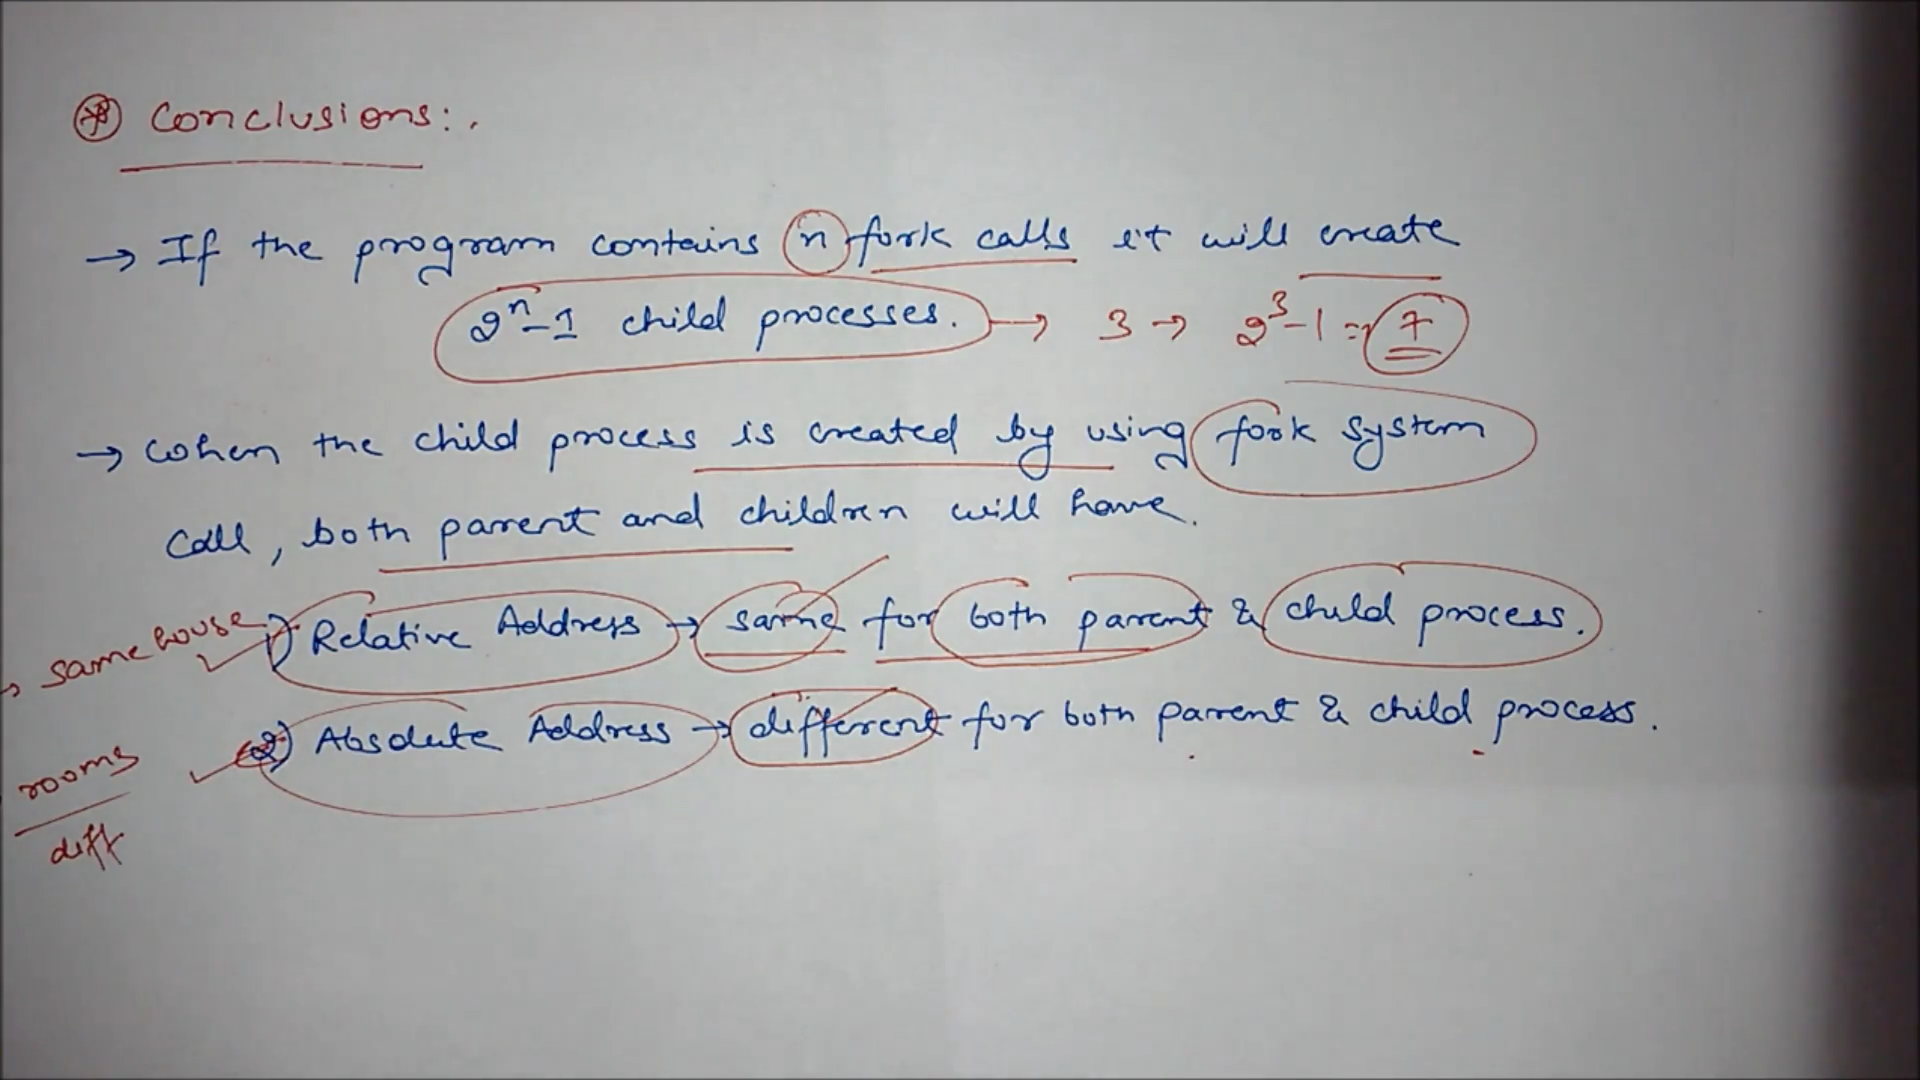 * Conclusions:.
→ If the program contains n fork calls it will create
2ⁿ-1 child processes. → 3 → 2³-1 = 7
→ When the child process is created by using fork system
call, both parent and children will have.
→ same house 1) Relative Address → same for both parent & child process.
rooms 2) Absolute Address → different for both parent & child process.
diff